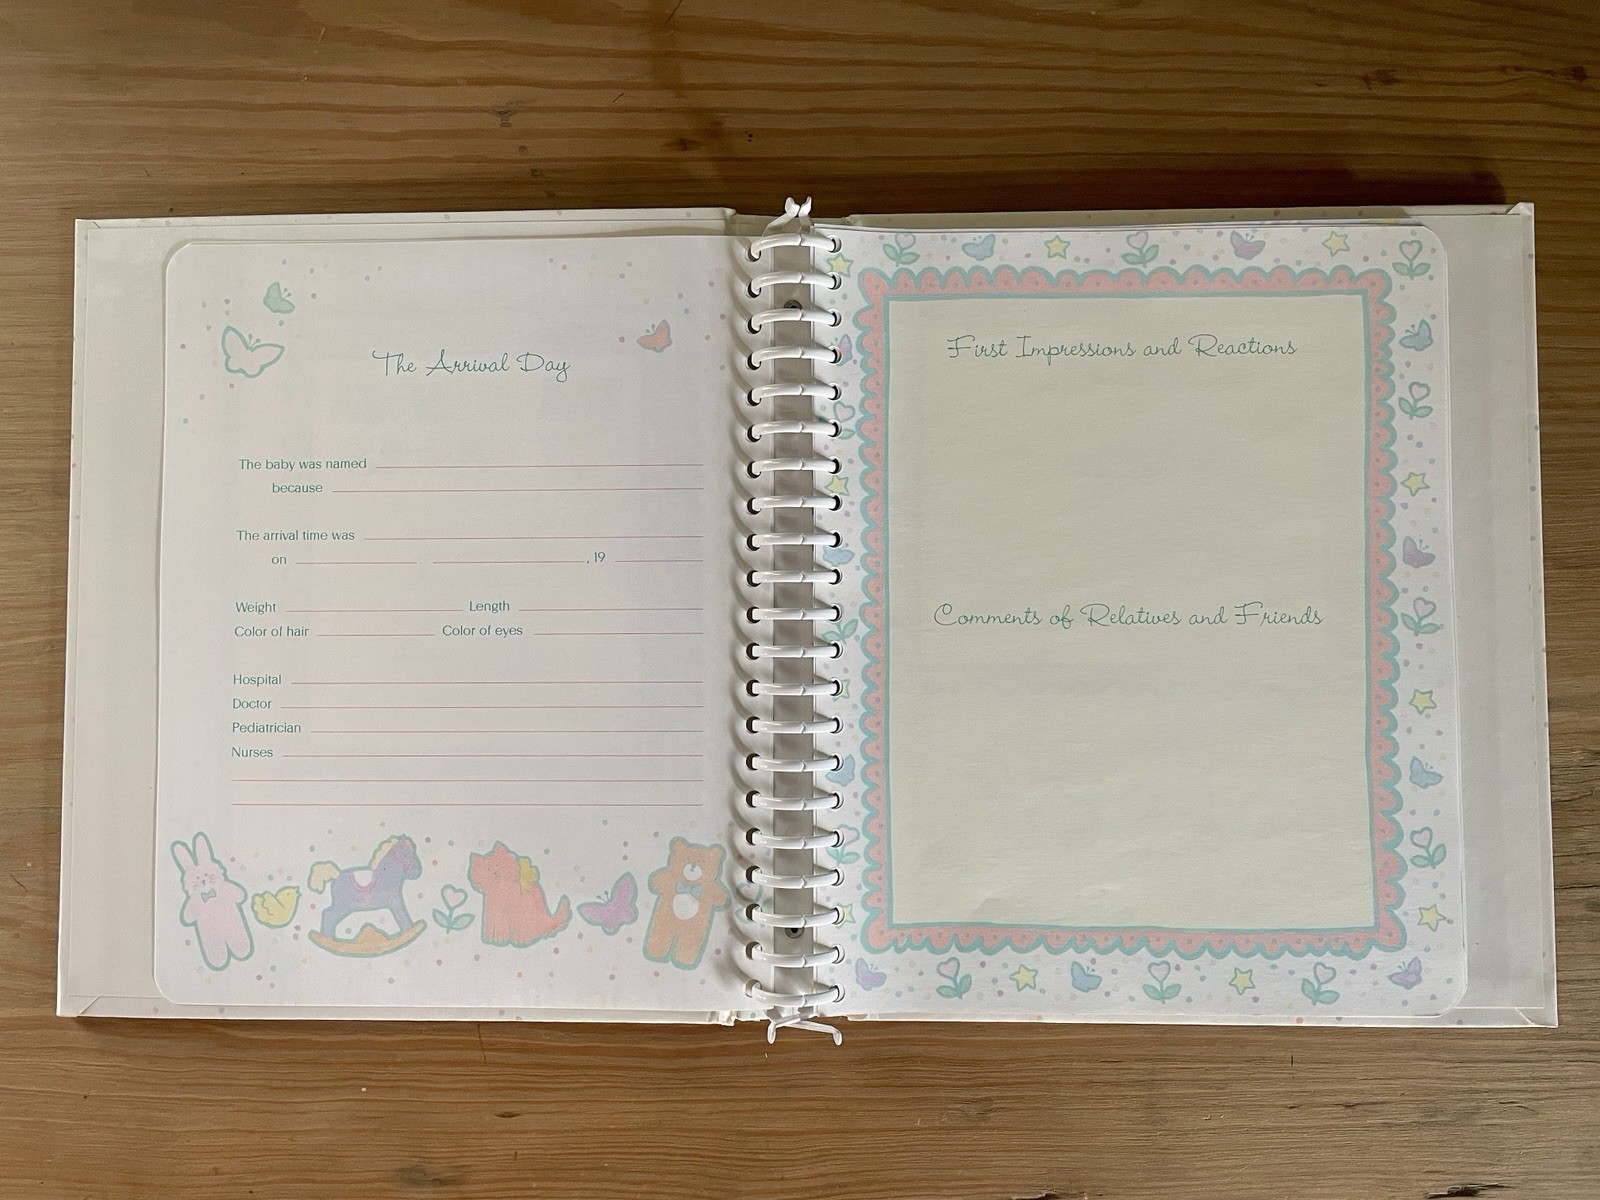 The Arrival Day
The baby was named
because
The arrival time was
on , 19
Weight Length
Color of hair Color of eyes
Hospital
Doctor
Pediatrician
Nurses
First Impressions and Reactions
Comments of Relatives and Friends